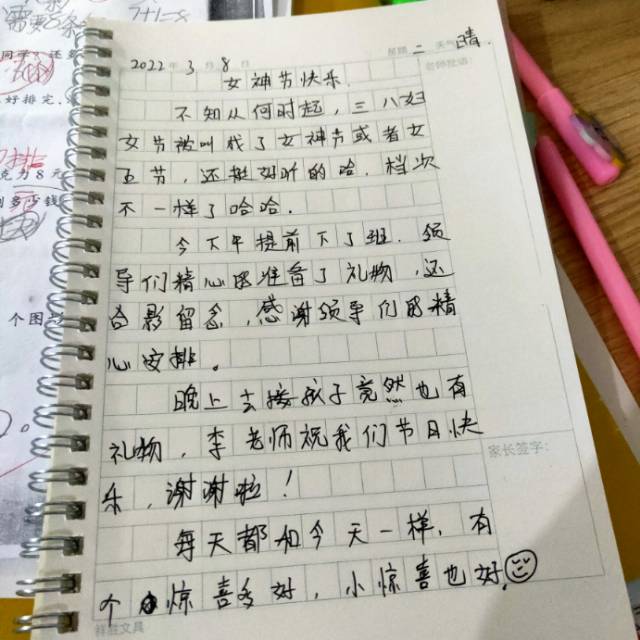 需要8条
7+1=8
同学，还
好排定，
克为8元
到多少钱
个图
2022年3月8日 星期二 天气晴
老师批语：
女神节快乐.
不知从何时起，三八妇
女节被叫成了女神节或者女
王节，还挺好听的哈，档次
不一样了哈哈.
今下午提前下了班，领
导们精心的准备了礼物，还
合影留念，感谢领导们的精
心安排。
晚上去接孩子竟然也有
礼物，李老师祝我们节日快
乐，谢谢啦！
每天都如今天一样，有
个惊喜多好，小惊喜也好.
家长签字：
祥胜文具